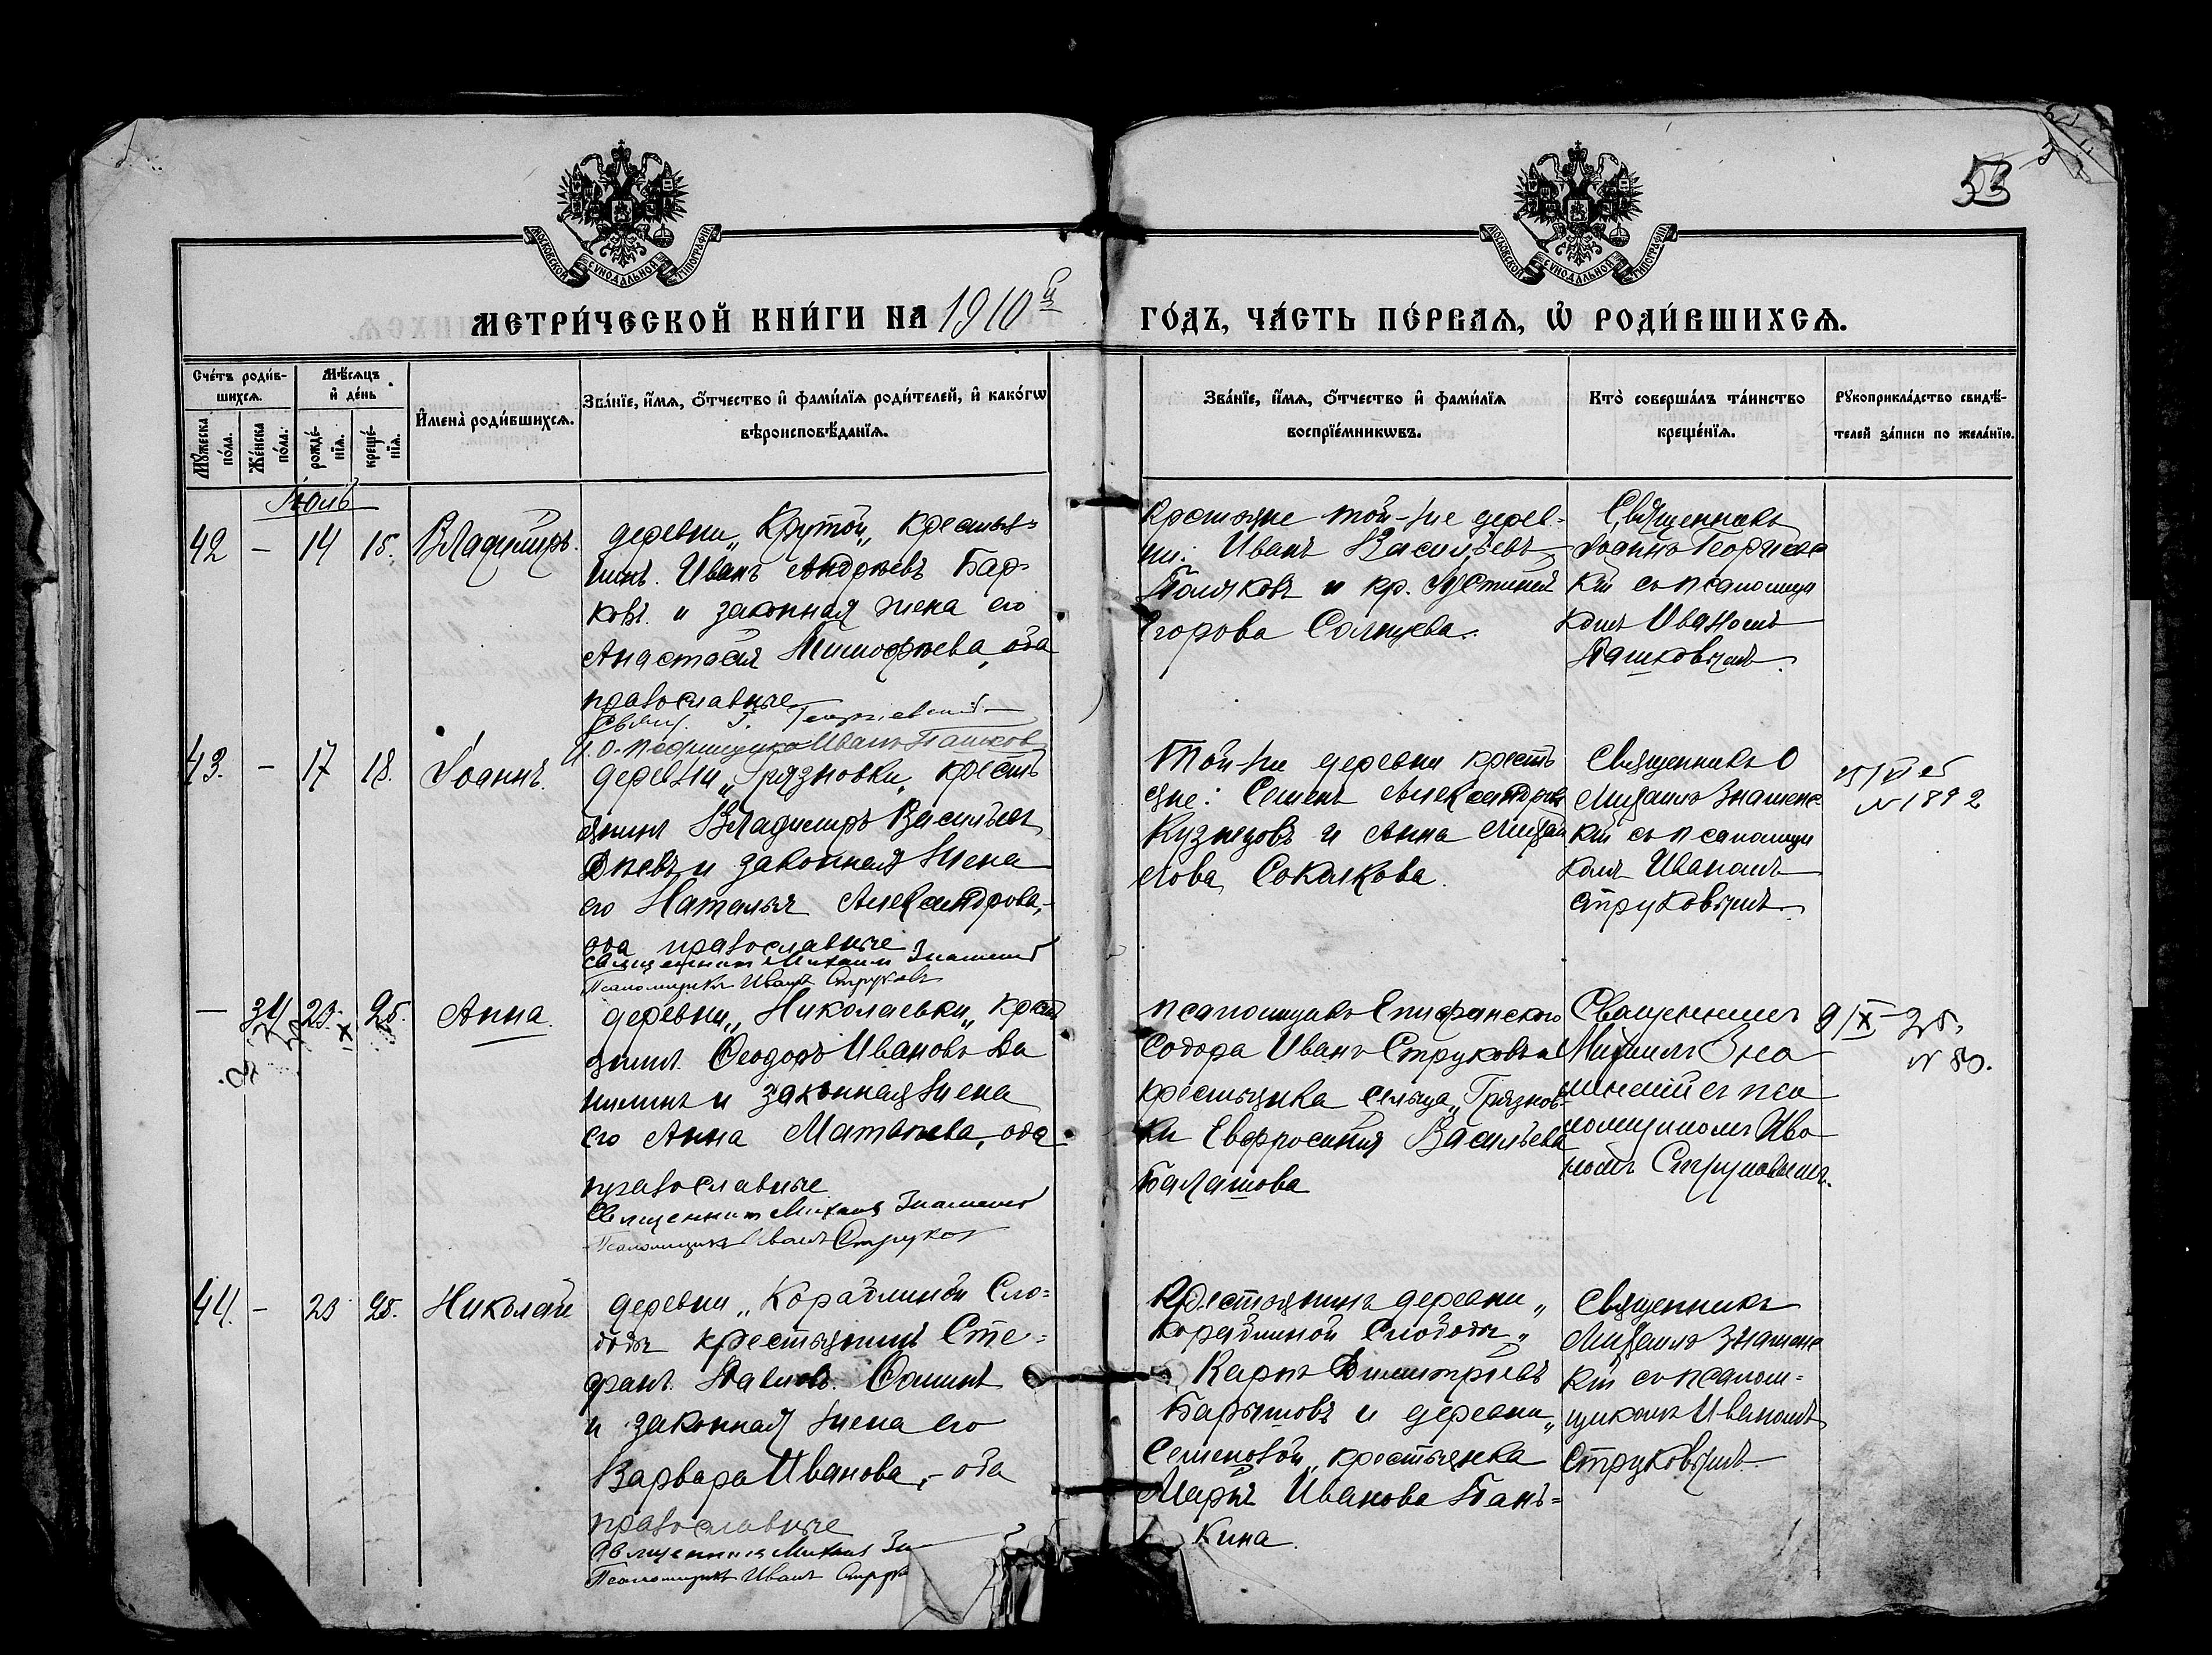 53
МОСКОВСКОЙ СУНОДАЛЬНОЙ ТИПОГРАФІИ
МОСКОВСКОЙ СУНОДАЛЬНОЙ ТИПОГРАФІИ
МЕТРИ́ЧЕСКОЙ КНИ́ГИ НА 1910й ГО́ДЪ, ЧА́СТЬ ПЕ́РВАѦ, Ѡ РОДИ́ВШИХСѦ.
Сче́тъ роди́в-
шихсѧ.
Мꙋжеска по́ла.
Же́нска по́ла.
Мѣ́сѧцъ
и де́нь
рожде́-
нїѧ.
креще́-
нїѧ.
Имена̀ роди́вшихсѧ.
Зва́нїе, и́мѧ, ѻ́тчество и фами́лїѧ роди́телей, и како́гѡ
вѣроисповѣ́данїѧ.
Зва́нїе, и́мѧ, ѻ́тчество и фами́лїѧ
воспрїе́мникѡвъ.
Кто̀ соверша́лъ та́инство
креще́нїѧ.
Рꙋкоприкла́дство свидѣ́-
телей за́писи по жела́нїю.
Іюль
42 – 14 15. Владиміръ.
деревни „Крутой„ крестья=
нинъ Иванъ Андреевъ Бар=
ковъ и законная жена его
Анастасія Тимофеева, оба
православные
Свящ. І. Георгіевскій
И. О. псаломщика Иванъ Пашков
Крестьяне той-же дерев=
ни: Иванъ Васильевъ
Поляковъ и кр. Устинія
Егорова Солнцева.
Священникъ
Іоаннъ Георгіевс
кій съ псаломщи
комъ Иваномъ
Пашковымъ.
43. – 17 18. Іоаннъ.
деревни „Грязновки„ кресть
янинъ Владиміръ Васильев
и законная жена
его Наталья Александрова,
оба православные
священник Михаил Знаменс
Псаломщикъ Иванъ Струковъ
Той-же деревни кресть
яне: Семенъ Александров
Кузнецовъ и Анна Михай
лова Соколкова.
Священникъ
Михаилъ Знаменс
кій съ псаломщи
комъ Иваномъ
Струковымъ.
25/VI 25
N 1892
– 34 23. 25. Анна.
деревни „Николаевки„ крест
янинъ Ѳеодоръ Ивановъ Ва
нинъ и законная жена
его Анна Матвѣева, оба
православные
Священник Михаил Знаменс
Псаломщикъ Иванъ Струков
псаломщикъ Епифанского
Собора Иванъ Струковъ и
крестьянка сельца „Грязнов-
ки Евфросинія Васильева
Балашова
Священникъ
Михаилъ Зна
менскій съ пса
ломщикомъ Ива
номъ Струковымъ.
9/IX 25.
N 83.
44. – 23 25. Николай
деревни „Кораблиной Сло=
боды крестьянинъ Сте=
фанъ Павловъ Ѳоминъ
и законная жена его
Варвара Иванова, – оба
православные
Священник Михаил Зн
Псаломщикъ Иванъ Струк
Крестьянинъ деревни „
Кораблиной Слободы„
Карпъ Димитріевъ
Барышовъ и деревни „
Семеновой„ крестьянка
Марія Иванова Пань=
кина.
Священникъ
Михаилъ Знаменс
кій съ псалом=
щикомъ Иваномъ
Струковымъ